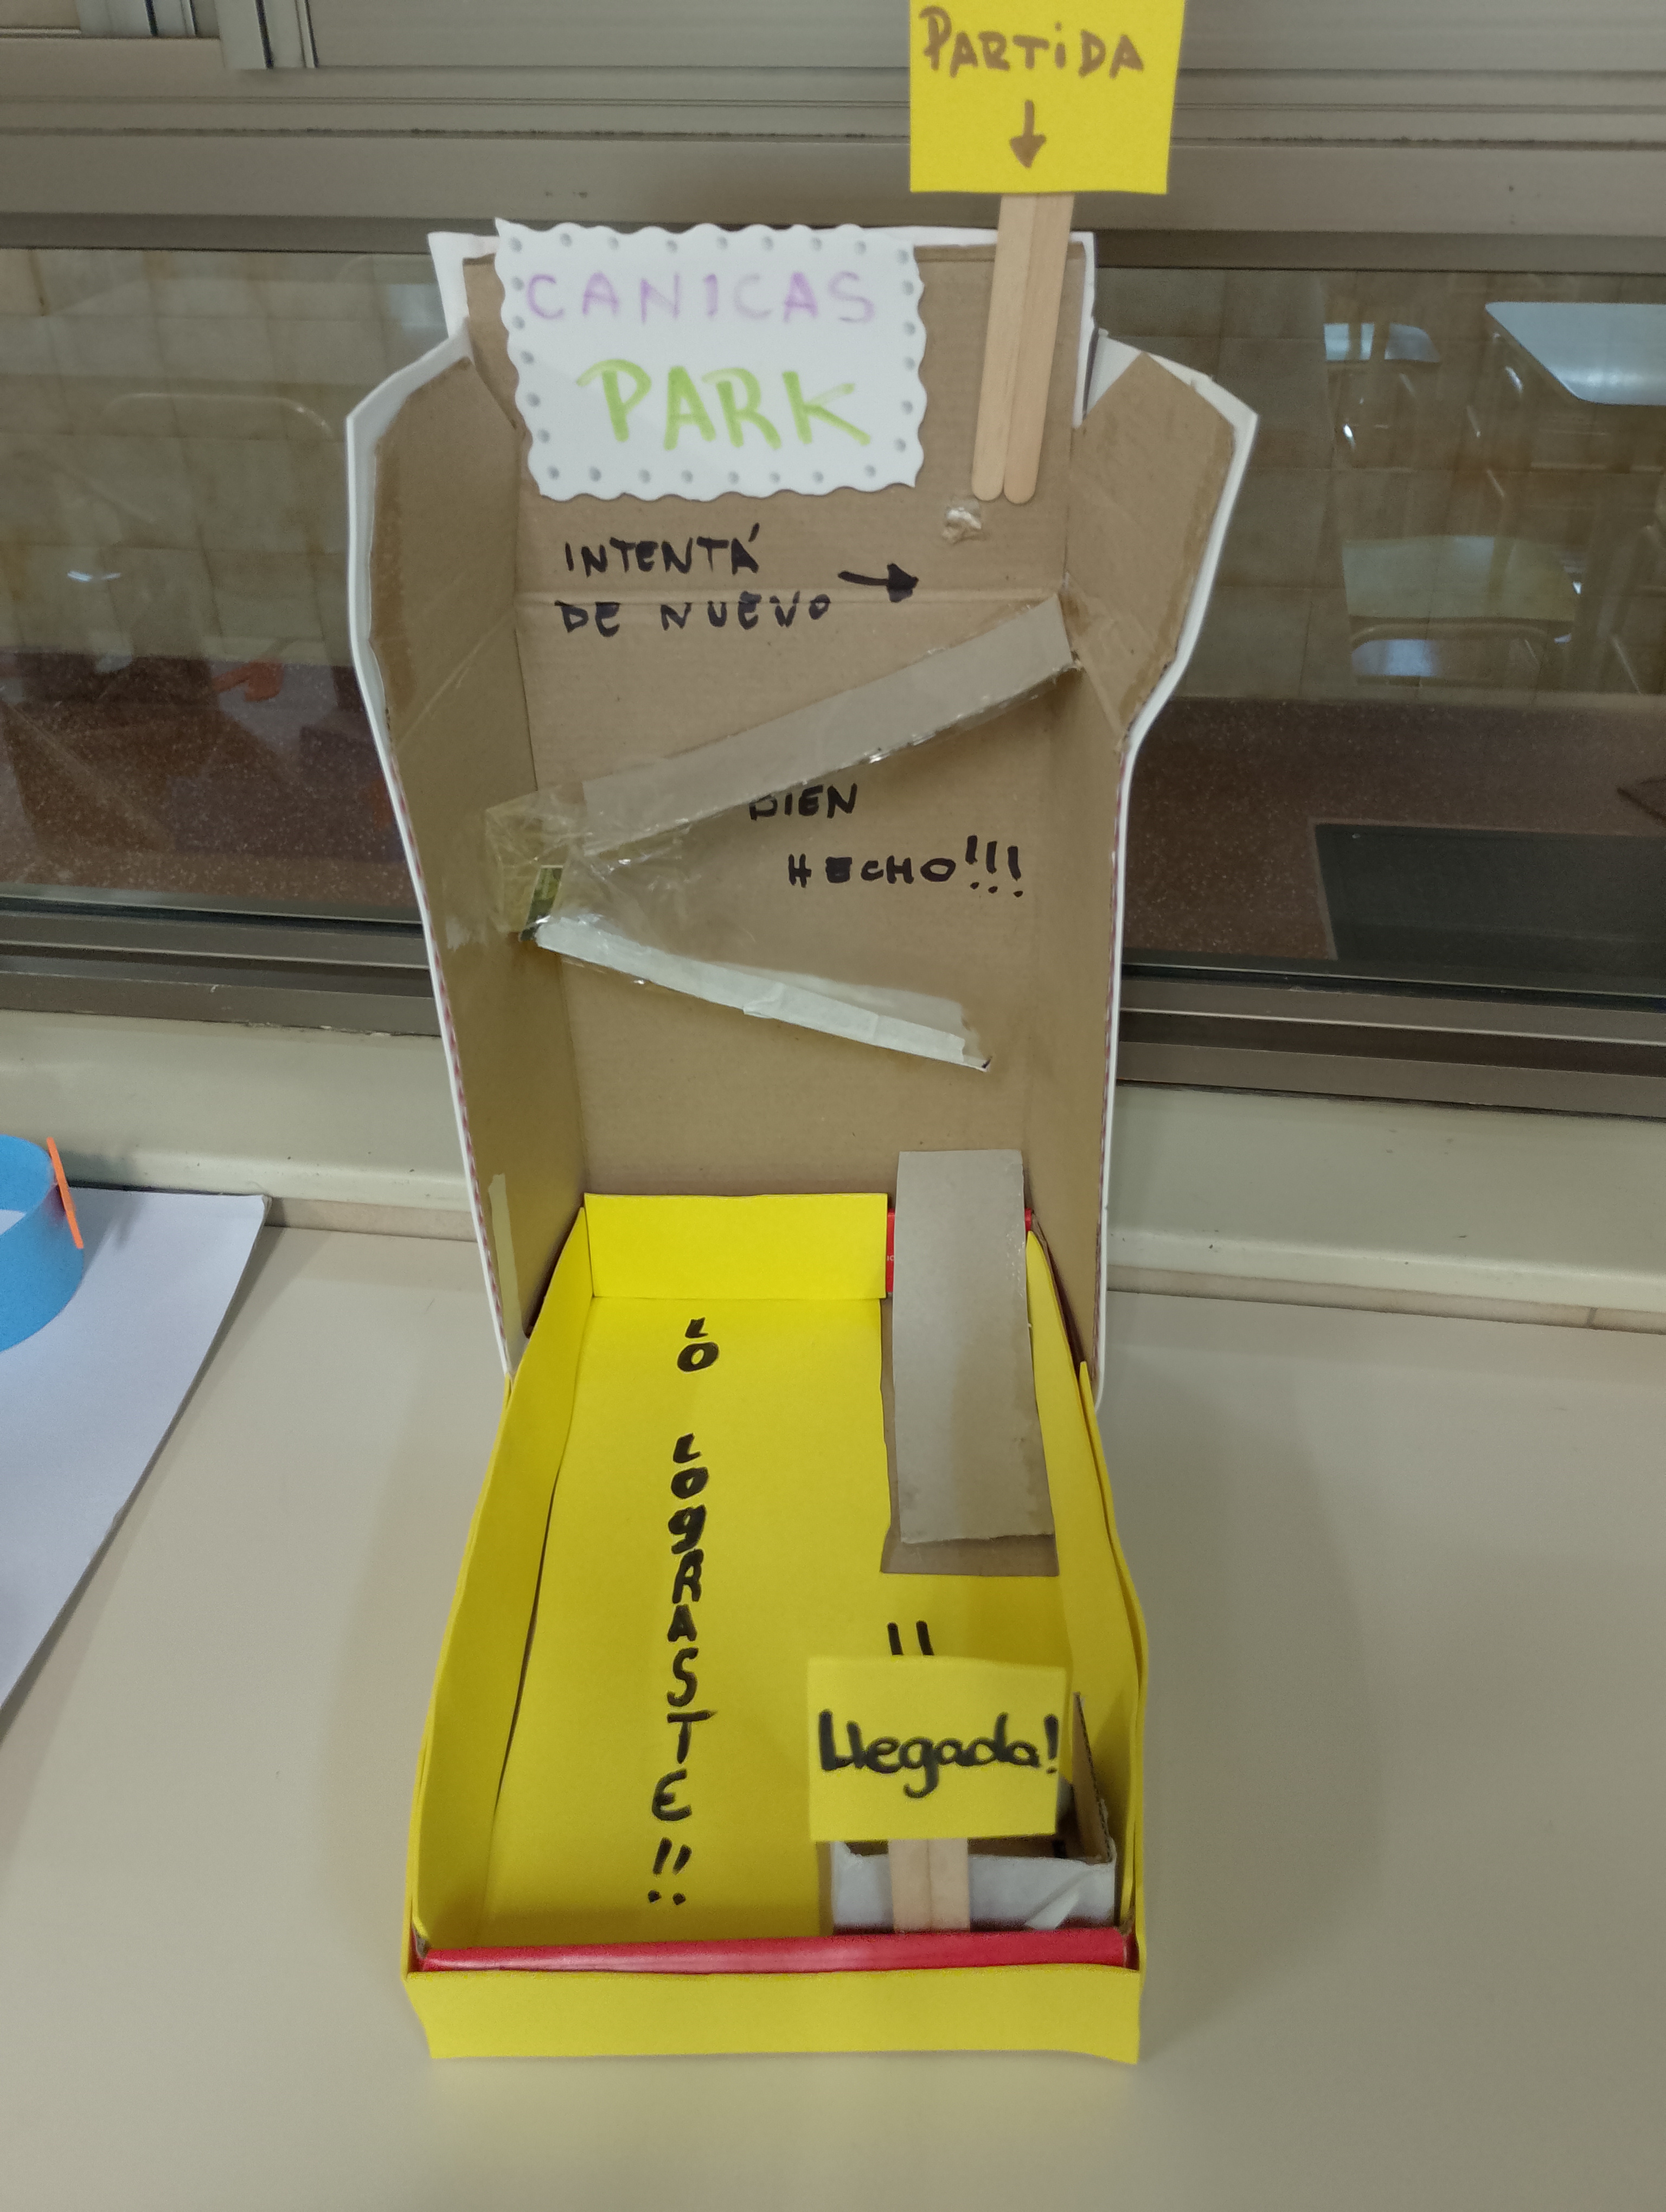 PARTiDA
CANICAS
PARK
INTENTÁ
DE NUEVO
BIEN
HECHO!!!
LO LOgRASTE!!
Llegada!